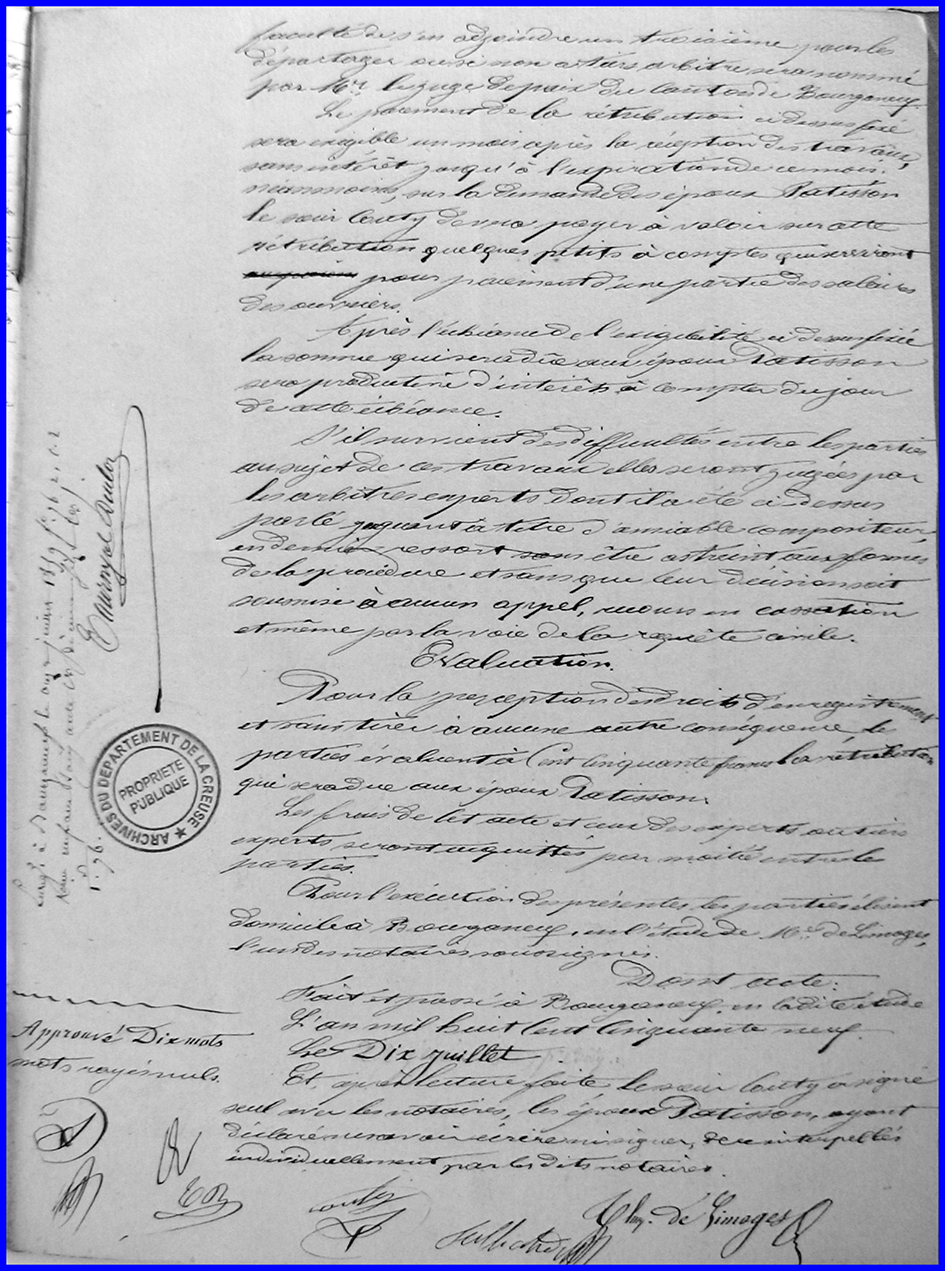 faculté de s'en adjoindre un troisième pour les
départager ou sinon ce tiers arbitre sera nommé
par Mr. le juge de paix du Canton de Bourganeuf
Le paiement de la rétribution ci dessus fixé
sera exigible un mois après la réception des travaux,
sans intérêt jusqu'à l'expiration de ce mois.
néanmoins, sur la demande des époux Patisson
le sieur Couty devra payer à valoir sur cette
rétribution quelques petits à comptes qui serviront
pour paiement d'une partie des salaires
des ouvriers.
Après l'échéance de l'exigibilité ci dessus fixée
la somme qui sera dûe aux époux Patisson
sera productive d'intérêts à compter du jour
de cette échéance.
S'il survient des difficultés entre les parties
au sujet de ces travaux elles seront jugées par
les arbitres experts dont il a été ci dessus
parlé jugeant à titre d'amiable compositeur,
en dernier ressort sans être astreint aux formes
de la procédure et sans que leur décision soit
soumise à aucun appel, recours en cassation
et même par la voie de la requête civile.
Evaluation.
Pour la perception des droits d'enregistrement
et sans tirer à aucune autre conséquence, les
parties évaluent à Cent cinquante francs la rétribution
qui sera due aux époux Patisson.
Les frais de cet acte et ceux des experts ou tiers
experts seront acquittés par moitié entre les
parties.
Pour l'exécution des présentes, les parties élisent
domicile à Bourganeuf, en l'étude de Me. de Limoges,
l'un des notaires soussignés.
Dont acte.
Fait et passé à Bourganeuf, en ladite étude
L'an mil huit cent cinquante neuf
Le Dix juillet
Et, après lecture faite le sieur Couty a signé
seul avec les notaires, les époux Patisson, ayant
déclaré ne savoir écrire ni signer, de ce interpellés
individuellement par lesdits notaires.
Approuvé Dix mots
mots rayés nuls.
ER
Couty
de Limoges
ARCHIVES DU DEPARTEMENT DE LA CREUSE
PROPRIETE
PUBLIQUE